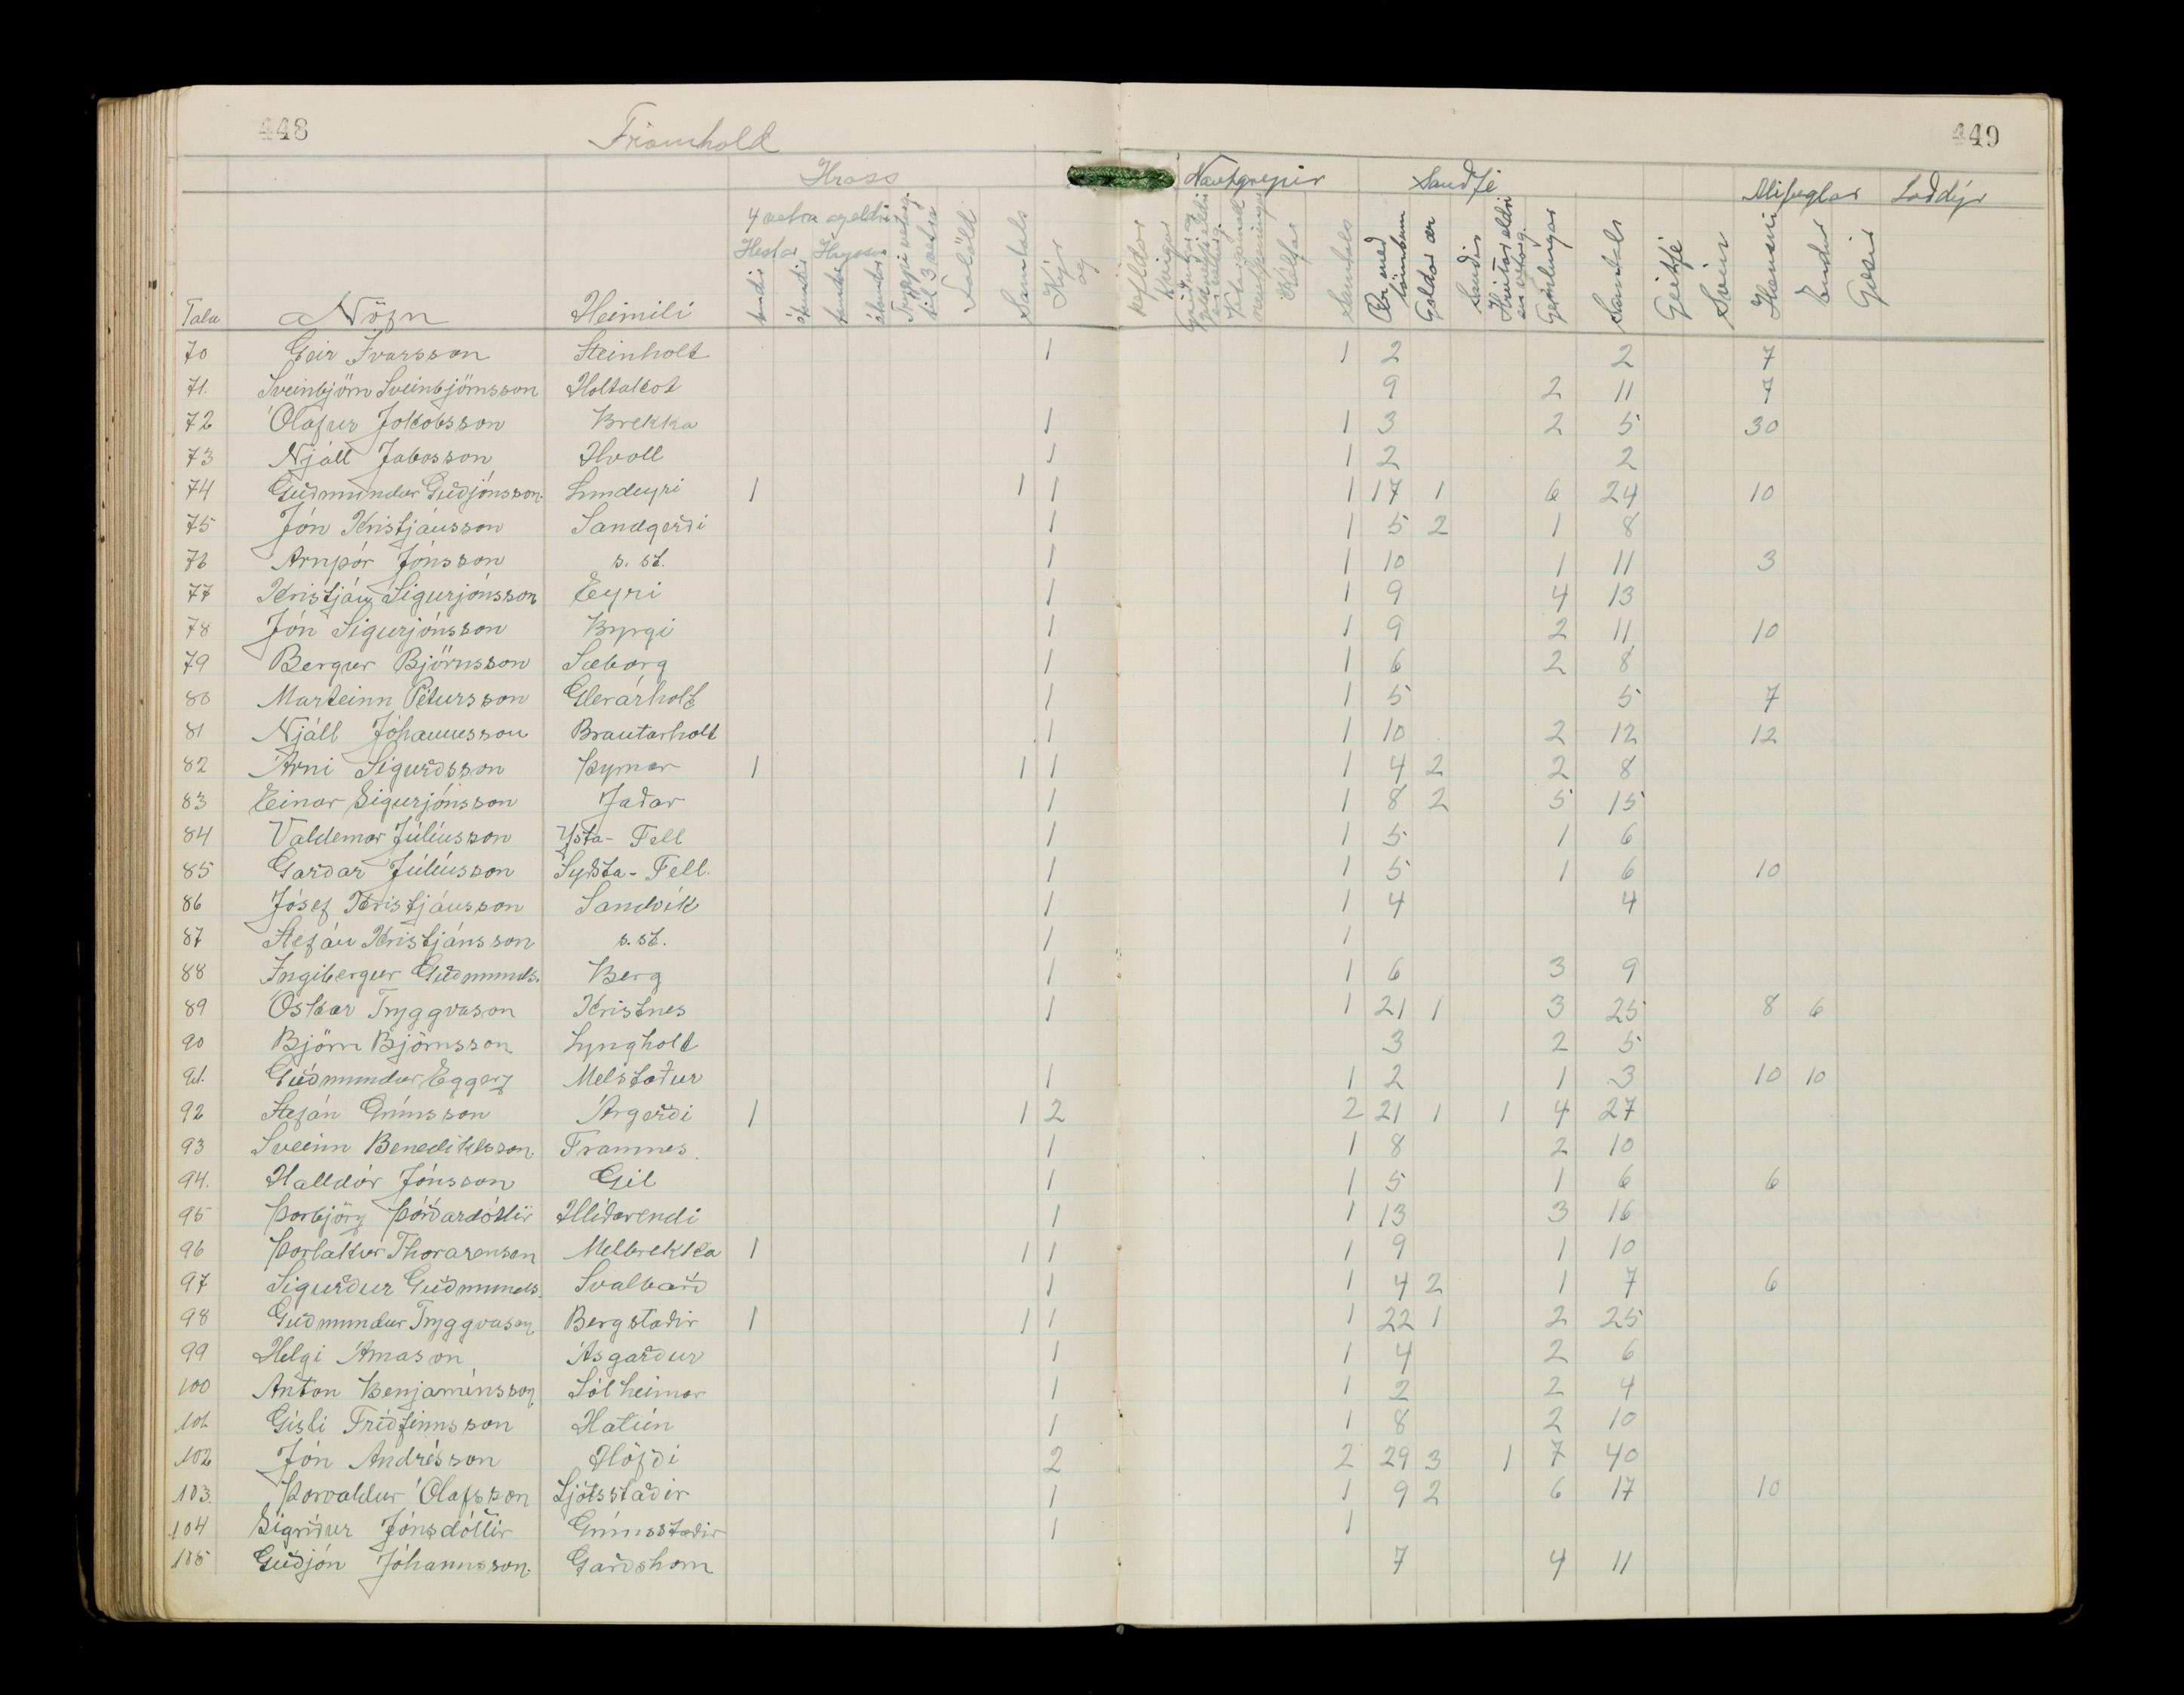 448
449
Framhald
Hross Nautgripir Sauðfé Alifuglar Loðdýr
4 vetra og eldri
Hestar Hryssur
Tala Nöfn Heimili tamdir ótamdir tamdar ótamdar Tryppi veturg. til 3 vetra Folöld Samtals Kýr og kefldar kvígur Kálfar Samtals Ær með lömbum Geldar ær Sauðir Hrútar eldri en veturg. Gemlingar Samtals Geitfé Svín Hænsni Endur Gæsir
70 Geir Ívarsson Steinholt 1 1 2 2 7
71. Sveinbjörn Sveinbjörnsson Holtakot 9 2 11 7
72 Ólafur Jakobsson Brekka 1 1 3 2 5 30
73 Njáll Jakosson Hvoll 1 1 2 2
74 Guðmundur Guðjónsson. Lundeyri 1 1 1 1 17 1 6 24 10
75 Jón Kristjánsson Sandgerði 1 1 5 2 1 8
76 Arnþór Jónsson s. st. 1 1 10 1 11 3
77 Kristján Sigurjónsson Eyri 1 1 9 4 13
78 Jón Sigurjónsson Byrgi 1 1 9 2 11 10
79 Bergur Björnsson Sæborg 1 1 6 2 8
80 Marteinn Pétursson Glerárholt 1 1 5 5 7
81 Njáll Jóhannesson Brautarholt 1 1 10 2 12 12
82 Árni Sigurðsson Þymar 1 1 1 1 4 2 2 8
83 Einar Sigurjónsson Jaðar 1 1 8 2 5 15
84 Valdemar Júlíusson Ysta-Fell 1 1 5 1 6
85 Garðar Júlíusson Syðsta-Fell. 1 1 5 1 6 10
86 Jósef Kristjánsson Sandvík 1 1 4 4
87 Stefán Kristjánsson s. st. 1 1
88 Ingibergur Guðmunds. Berg 1 1 6 3 9
89 Óskar Tryggvason Kristnes 1 1 21 1 3 25 8 6
90 Björn Björnsson Lyngholt 3 2 5
91. Guðmundur Eggerz Melstaður 1 1 2 1 3 10 10
92 Stefán Grímsson Árgerði 1 1 2 2 21 1 1 4 27
93 Sveinn Benediktsson Framnes. 1 1 8 2 10
94. Halldór Jónsson Gil 1 1 5 1 6 6
95 Þorbjörg Þórðardóttir Hlíðarendi 1 1 13 3 16
96 Þorlákur Thorarensen Melbrekka 1 1 1 1 9 1 10
97 Sigurður Guðmunds. Svalbarð 1 1 4 2 1 7 6
98 Guðmundur Tryggvason Bergstaðir 1 1 1 1 22 1 2 25
99 Helgi Árnason Ásgarður 1 1 4 2 6
100 Anton Benjamínsson Sólheimar 1 1 2 2 4
101. Gísli Friðfinnsson Hátún 1 1 8 2 10
102 Jón Andrésson Höfði 2 2 29 3 1 7 40
103. Þorvaldur Ólafsson Ljótsstaðir 1 1 9 2 6 17 10
104 Sigríður Jónsdóttir Grímsstaðir 1 1
105 Guðjón Jóhannsson. Garðshorn 7 4 11